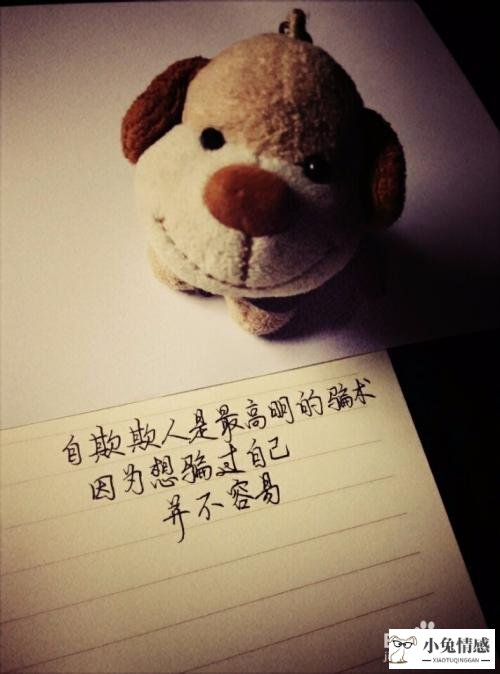 自欺欺人是最高明的骗术
因为想骗过自己
并不容易
小兔情感
XIAOTUQINGGAN